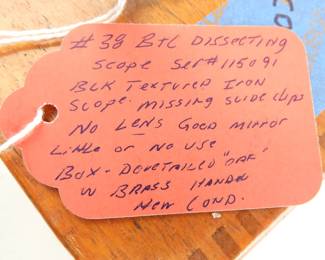 #38 B+L DISSECTING
SCOPE SER# 115091
BLK TEXTURED IRON
SCOPE. MISSING SLIDE CLIPS
NO LENS GOOD MIRROR
LITTLE OR NO USE
BOX - DOVETAILED "OAK"
W BRASS HANDLE
NEW COND.
CO